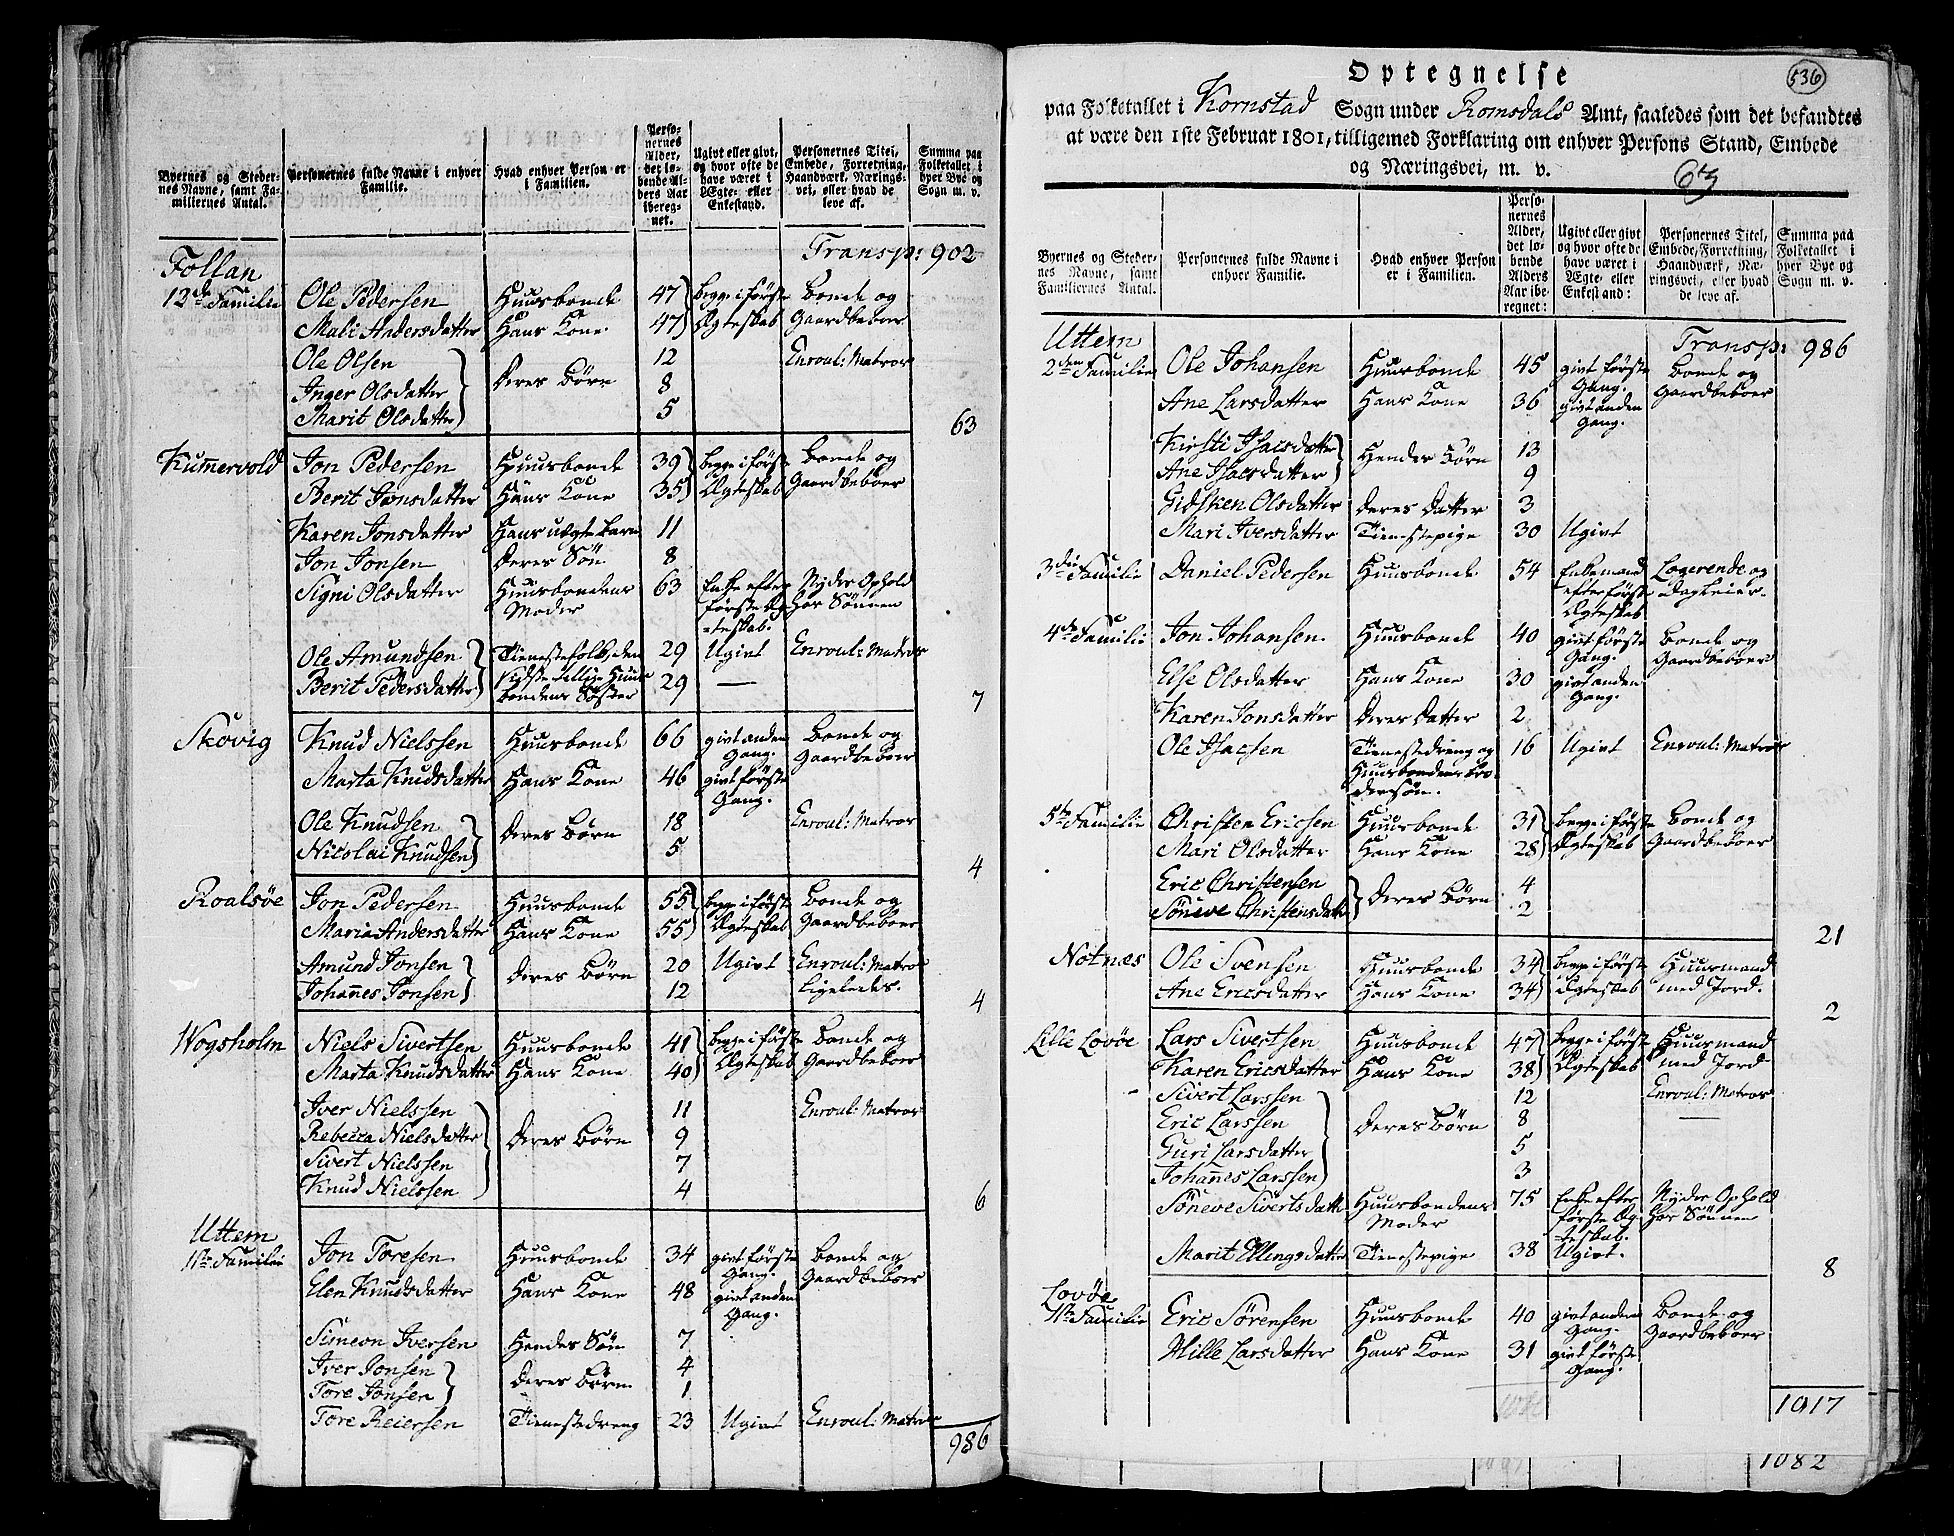 Byernes og Steder-
nes Navne, samt Fa-
miliernes Antal.
Personernes fulde Navne i enhver
Familie.
Hvad enhver Person er
i Familien.
Perso-
nernes
Alder,
det lø-
bende Al-
ders Aar
iberegnet.
Ugivt eller givt,
og hvor ofte de
have været i
Ægte- eller
Enkestand.
Personernes Titel,
Embede, Forretning,
Haandværk, Nærings-
vei, eller hvad de
leve af.
Summa paa
Folketallet i
hver Bye og
Sogn m. v.
Transp: 902
Follan
12de Familie Ole Pedersen Huusbonde 47 begge i første Bonde og
Mali Andersdatter Hans Kone 47 Ægteskab Gaardbeboer
Ole Olsen 12 Enroul: Matros
Inger Olsdatter Deres Børn 8
Marit Olsdatter 5
63
Kummervold Jon Pedersen Huusbonde 39 begge i første Bonde og
Berit Jonsdatter Hans Kone 35 Ægteskab Gaardbeboer
Karen Jonsdatter Hans uægte Barn 11
Jon Jonsen Deres Søn 8
Signi Olsdatter Huusbondens 63 Enke efter Nyder Ophold
Moder første Æg- hos Sønnen
-teskab.
Ole Amundsen Tienestefolk, den 29 Ugivt Enroul: Matros
Berit Pedersdatter Sidste tillige Huus 29 —
bondens Søster
7
Skovig Knud Nielssen Huusbonde 66 givt anden Bonde og
Gang. Gaardbeboer
Marta Knudsdatter Hans Kone 46 givt første
Gang.
Ole Knudsen 18 Enroul: Matros
Deres Børn
Nicolai Knudsen 5
4
Roalsøe Jon Pedersen Huusbonde 55 begge i første Bonde og
Maria Andersdatter Hans Kone 55 Ægteskab Gaardbeboer
Amund Jonsen 20 Ugivt Enroul: Matros
Deres Børn
Johannes Jonsen 12 Ligeledes.
4
Wogsholm Niels Sivertsen Huusbonde 41 begge i første Bonde og
Marta Knudsdatter Hans Kone 40 Ægteskab Gaardbeboer
Iver Nielssen 11 Enroul: Matros
Rebecca Nielsdatter Deres Børn 9
Sivert Nielssen 7
Knud Nielssen 4
6
Uttem
1ste Familie Jon Toresen Huusbonde 34 givt første Bonde og
Gang. Gaardbeboer
Elen Knudsdatter Hans Kone 48 givt anden
Gang.
Simeon Iversen Hendes Søn 7
Iver Jonsen 4
Deres Børn
Tore Jonsen 1
Tore Reiersen Tienestedreng 23 Ugivt Enroul: Matros
986
536
Optegnelse
paa Folketallet i Kornstad Sogn under Romsdals Amt, saaledes som det befandtes
at være den 1ste Februar 1801, tilligemed Forklaring om enhver Persons Stand, Embede
og Næringsvei, m. v.
Byernes og Steder-
nes Navne, samt
Familiernes Antal.
Personernes fulde Navne i
enhver Familie.
Hvad enhver Person
er i Familien.
Perso-
nernes
Alder,
det lø-
bende
Alders
Aar ibe-
regnet:
Ugivt eller givt
og hvor ofte de
have været i
Ægte- eller
Enkestand:
Personernes Titel,
Embede, Forretning,
Haandværk, Næ-
ringsvei, eller hvad
de leve af.
Summa paa
Folketallet i
hver Bye og
Sogn m. v.
Uttem Transp: 986
2den Familie Ole Johansen Huusbonde 45 givt første Bonde og
Gang. Gaardbeboer
Ane Larsdatter Hans Kone 36 givt anden
Gang.
Kirsti Isacsdatter 13
Hendes Børn
Ane Isacsdatter 9
Gidsken Olsdatter Deres Datter 3
Mari Iversdatter Tienestepige 30 Ugivt
3die Familie Daniel Pedersen Huusbonde 54 Enkemand Logerende og
efter første Dagleier.
Ægteskab
4de Familie Jon Johansen Huusbonde 40 givt første Bonde og
Gang. Gaardbeboer
Else Olsdatter Hans Kone 30 givt anden
Gang.
Karen Jonsdatter Deres Datter 2
Ole Isacsen Tienestedreng og 16 Ugivt Enroul: Matros
Huusbondens Bro
dersøn.
5te Familie Christen Ericsen Huusbonde 31 begge i første Bonde og
Mari Olsdatter Hans Kone 28 Ægteskab Gaardbeboer
Eric Christensen 4
Deres Børn
Søneve Christensdatter 2
21
Notnæs Ole Svensen Huusbonde 34 begge i første Huusmand
Ane Ericsdatter Hans Kone 34 Ægteskab med Jord.
2
Lille Lovøe Lars Sivertsen Huusbonde 47 begge i første Huusmand
Karen Ericsdatter Hans Kone 38 Ægteskab med Jord
Sivert Larssen 12 Enroul: Matros
Eric Larssen Deres Børn 8 —
Guri Larsdatter 5
Johannes Larssen 3
Søneve Sivertsdatter Huusbondens 75 Enke efter Nyder Ophold
Moder første Æg- hos Sønnen
teskab.
Marit Ellingsdatter Tienestepige 38 Ugivt.
8
Lovøe
1ste Familie Eric Sørensen Huusbonde 40 givt anden Bonde og
Gang. Gaardbeboer
Mille Larsdatter Hans Kone 31 givt første
Gang.
1017
1082